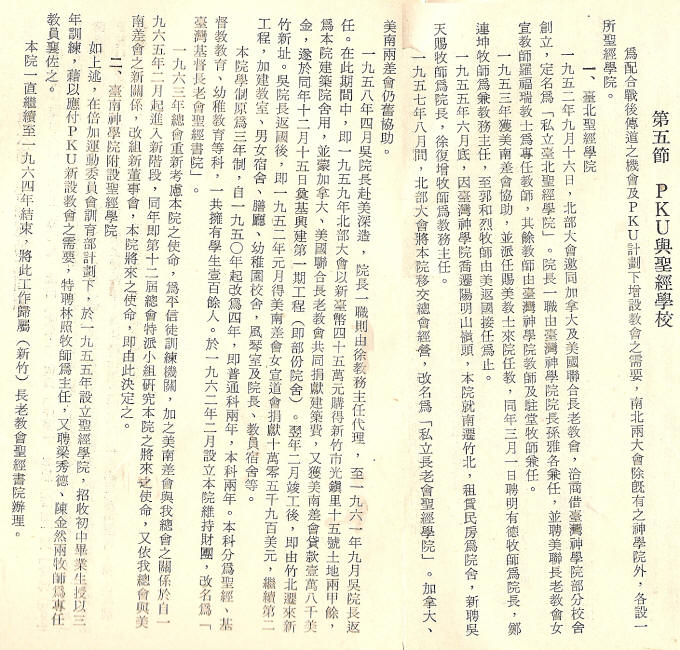 第五節　PKU與聖經學校
為配合戰後傳道之機會及PKU計劃下增設教會之需要，南北兩大會除既有之神學院外，各設一
所聖經學院。
一、臺北聖經學院
一九五二年九月十六日，北部大會邀同加拿大及美國聯合長老教會，洽商借臺灣神學院部分校舍
創立，定名爲「私立臺北聖經學院」。院長一職由臺灣神學院院長孫雅各兼任，並聘美聯長老教會女
宣教師羅福瑞教士爲專任教師，其餘教師由臺灣神學院教師及駐堂牧師兼任。
一九五三年獲美南差會協助，並派任賜美教士來院任教，同年三月一日聘明有德牧師爲院長，鄭
連坤牧師爲兼教務主任，至郭和烈牧師由美返國接任爲止。
一九五五年六月底，因臺灣神學院喬遷陽明山嶺頭，本院就南遷竹北，租賃民房爲院舍，新聘吳
天賜牧師爲院長，徐復增牧師爲教務主任。
一九五七年八月間，北部大會將本院移交總會經營，改名爲「私立長老會聖經學院」。加拿大、
美南兩差會仍舊協助。
一九五八年四月吳院長赴美深造，院長一職則由徐教務主任代理，至一九六一年九月吳院長返
任。在此期間中，即一九五九年北部大會以新臺幣四十五萬元購得新竹市光鎭里十五號土地兩甲餘，
爲本院建築院舍用，並蒙加拿大、美國聯合長老教會共同捐獻建築費，又獲美南差會貸款壹萬八千美
金，遂於同年十二月十五日奠基興建第一期工程（即部份院舍）。翌年二月竣工後，即由竹北遷來新
竹新址。吳院長返國後，即一九五二年元月得美南差會女宣道會捐獻十萬零五千九百美元，繼續第二
工程，加建教室、男女宿舍、膳廳、幼稚園校舍，風琴室及院長、教員宿舍等。
本院學制原爲三年制，自一九五〇年起改爲四年，即普通科兩年，本科兩年。本科分爲聖經、基
督教教育、幼稚教育等科，一共擁有學生壹百餘人。於一九六二年二月設立本院維持財團，改名爲「
臺灣基督長老教會聖經書院」。
一九六三年總會重新考慮本院之使命，爲平信徒訓練機關，加之美南差會與我總會之關係於自一
九六五年二月起進入新階段，同年即第十二屆總會特派小組研究本院之將來之使命，又依我總會與美
南差會之新關係，改組新董事會，本院將來之使命，即由此決定之。
二、臺南神學院附設聖經學院
如上述，在倍加運動委員會訓育部計劃下，於一九五五年設立聖經學院，招收初中畢業生授以三
年訓練，藉以應付PKU新設教會之需要，特聘林照牧師爲主任，又聘梁秀德、陳金然兩牧師爲專任
教員襄佐之。
本院一直繼續至一九六四年結束，將此工作歸屬（新竹）長老教會聖經書院辦理。